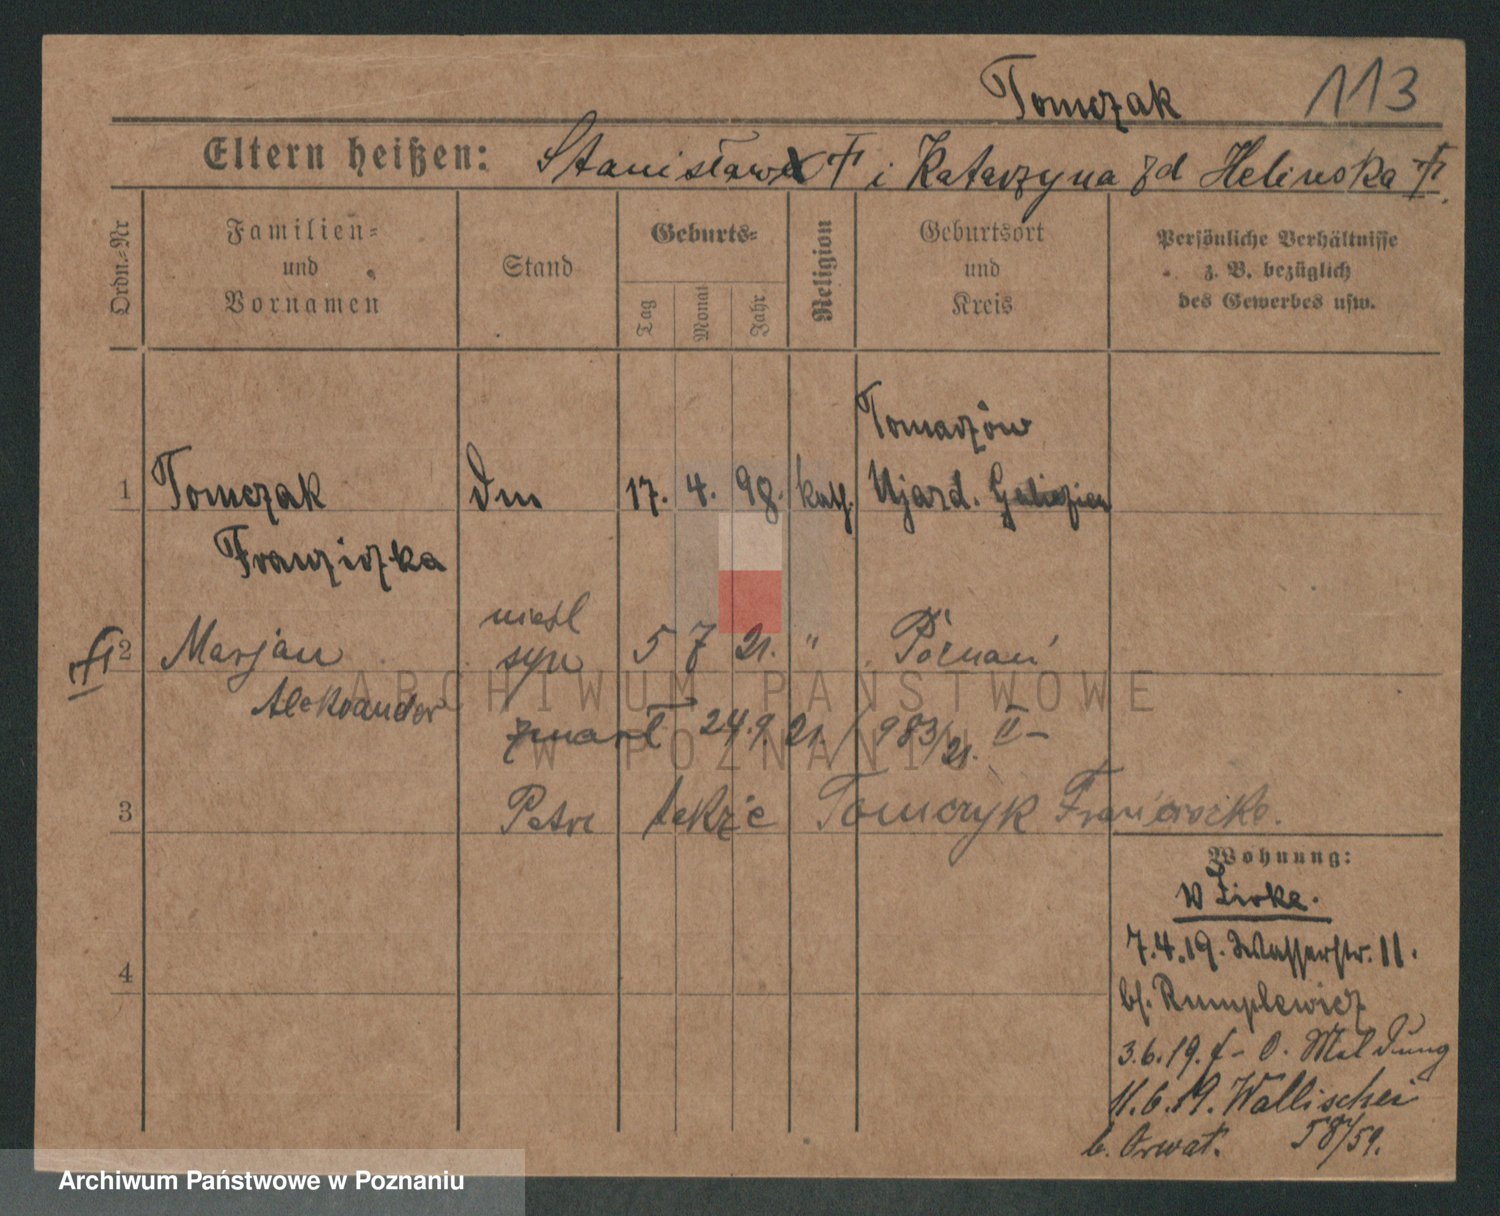 Tomczak 113
Eltern heißen: Stanisław i Katarzyna zd Helinska
Ordn.-Nr
Familien-
und
Vornamen
Stand
Geburts-
Tag Monat Jahr
Religion
Geburtsort
und
Kreis
Persönliche Verhältnisse
z. B. bezüglich
des Gewerbes usw.
Tomaszów
1 Tomczak Dm 17. 4. 98. kath. Ujazd. Galizien
Franziszka
nieśl
2 Marjan syn 5 7 21. " Poznań
Aleksander
zmarł 24.9.21. / 983/21. II-
3 Patrz także Tomczyk Franciszka.
Wohnung:
W Zirke.
7.4.19. Wasserstr. 11.
bf. Rumplewicz
4
3.6.19. f- O. Meldung
11.6.19. Wallischei
b. Orwat. 58/59.
ARCHIWUM PAŃSTWOWE
W POZNANIU
Archiwum Państwowe w Poznaniu